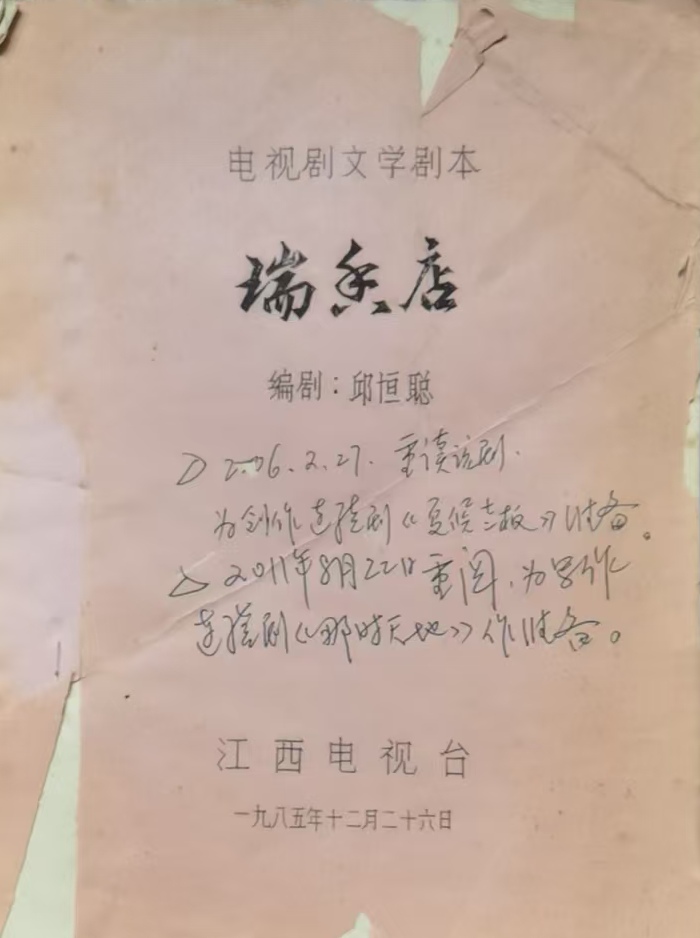 电视剧文学剧本
瑞香店
编剧：邱恒聪
△ 2006.2.27. 重读该剧.
为创作连续剧《夏侯老板》准备。
△ 2011年8月22日重阅，为写作
连续剧《那时天地》作准备。
江西电视台
一九八五年十二月二十六日